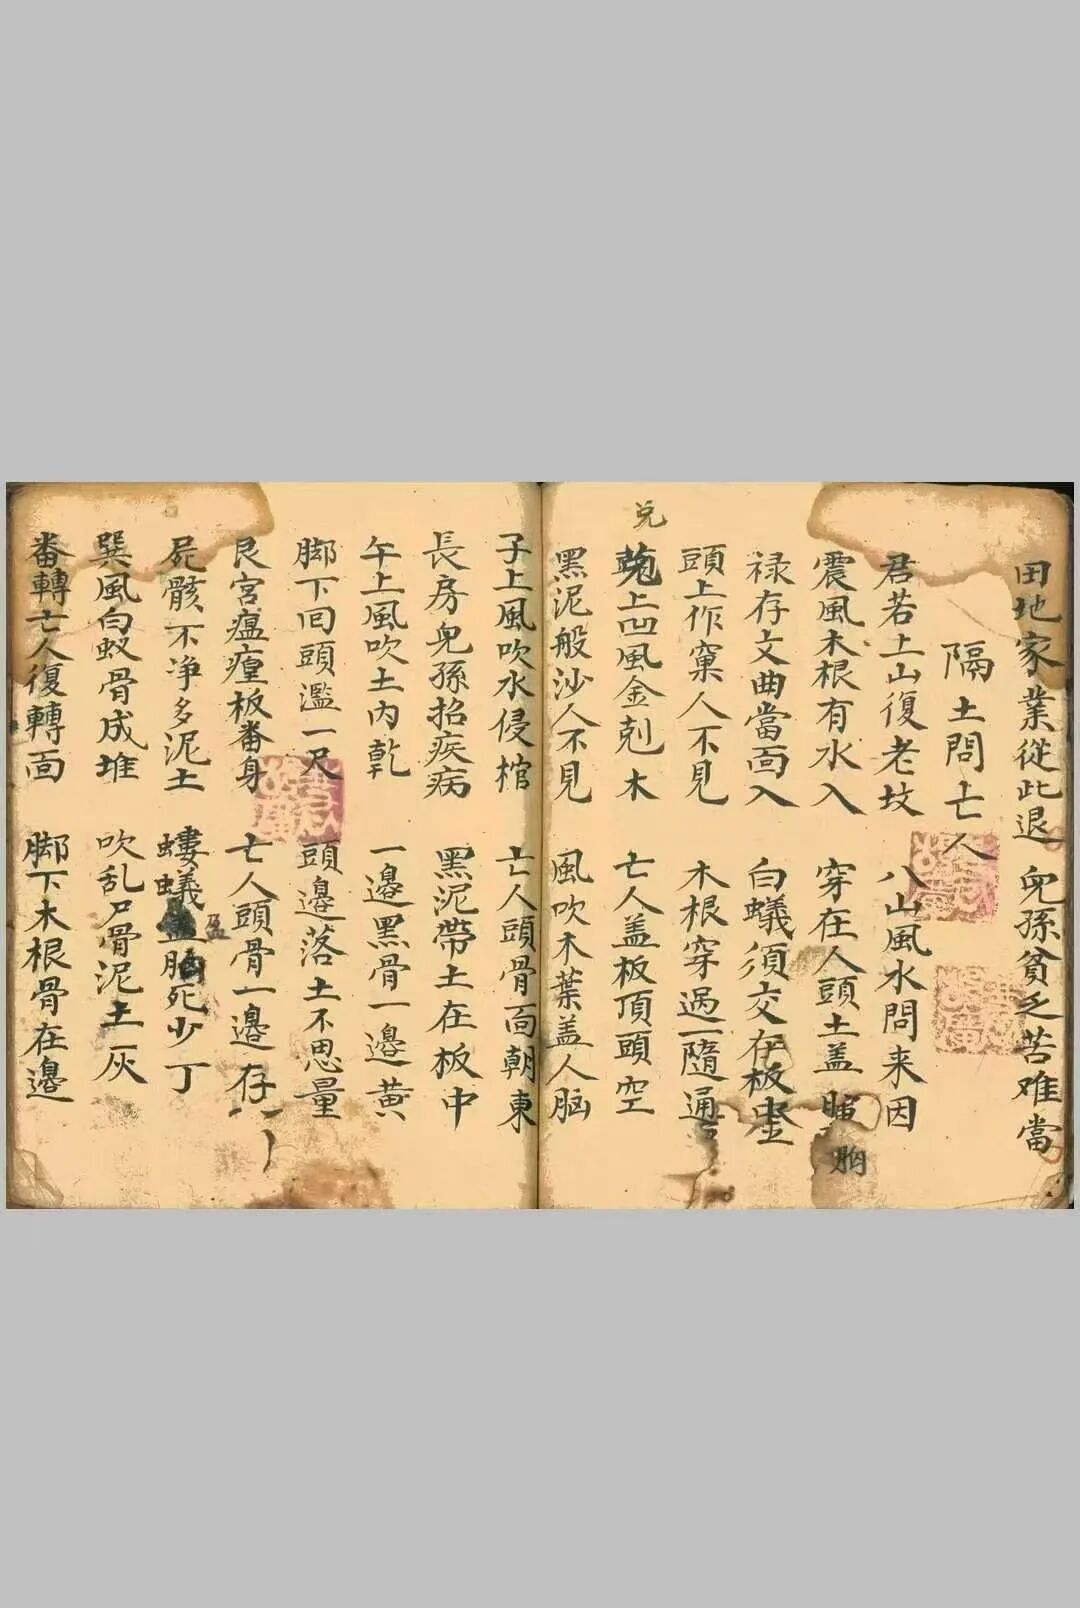 田地家業從此退 兒孫貧乏苦难當
隔土問亡人
君若上山復老坟 八山風水問来因
震風木根有水入 穿在人頭土盖胸
禄存文曲當面入 白蟻須交存板
頭上作窠人不見 木根穿過一隨通
兑上凹風金剋木 亡人盖板頂頭空
黑泥般沙人不見 風吹木葉盖人脑
子上風吹水侵棺 亡人頭骨面朝東
長房兒孫招疾病 黑泥帶土在板中
午上風吹土内乾 一邉黑骨一邉黄
脚下囘頭濫一尺 頭邉落土不思量
艮宮瘟㾮板番身 亡人頭骨一邉存
屍骸不净多泥土 螻蟻 死少丁
巽風白蚁骨成堆 吹乱尸骨泥土灰
番轉亡人復轉面 脚下木根骨在邉